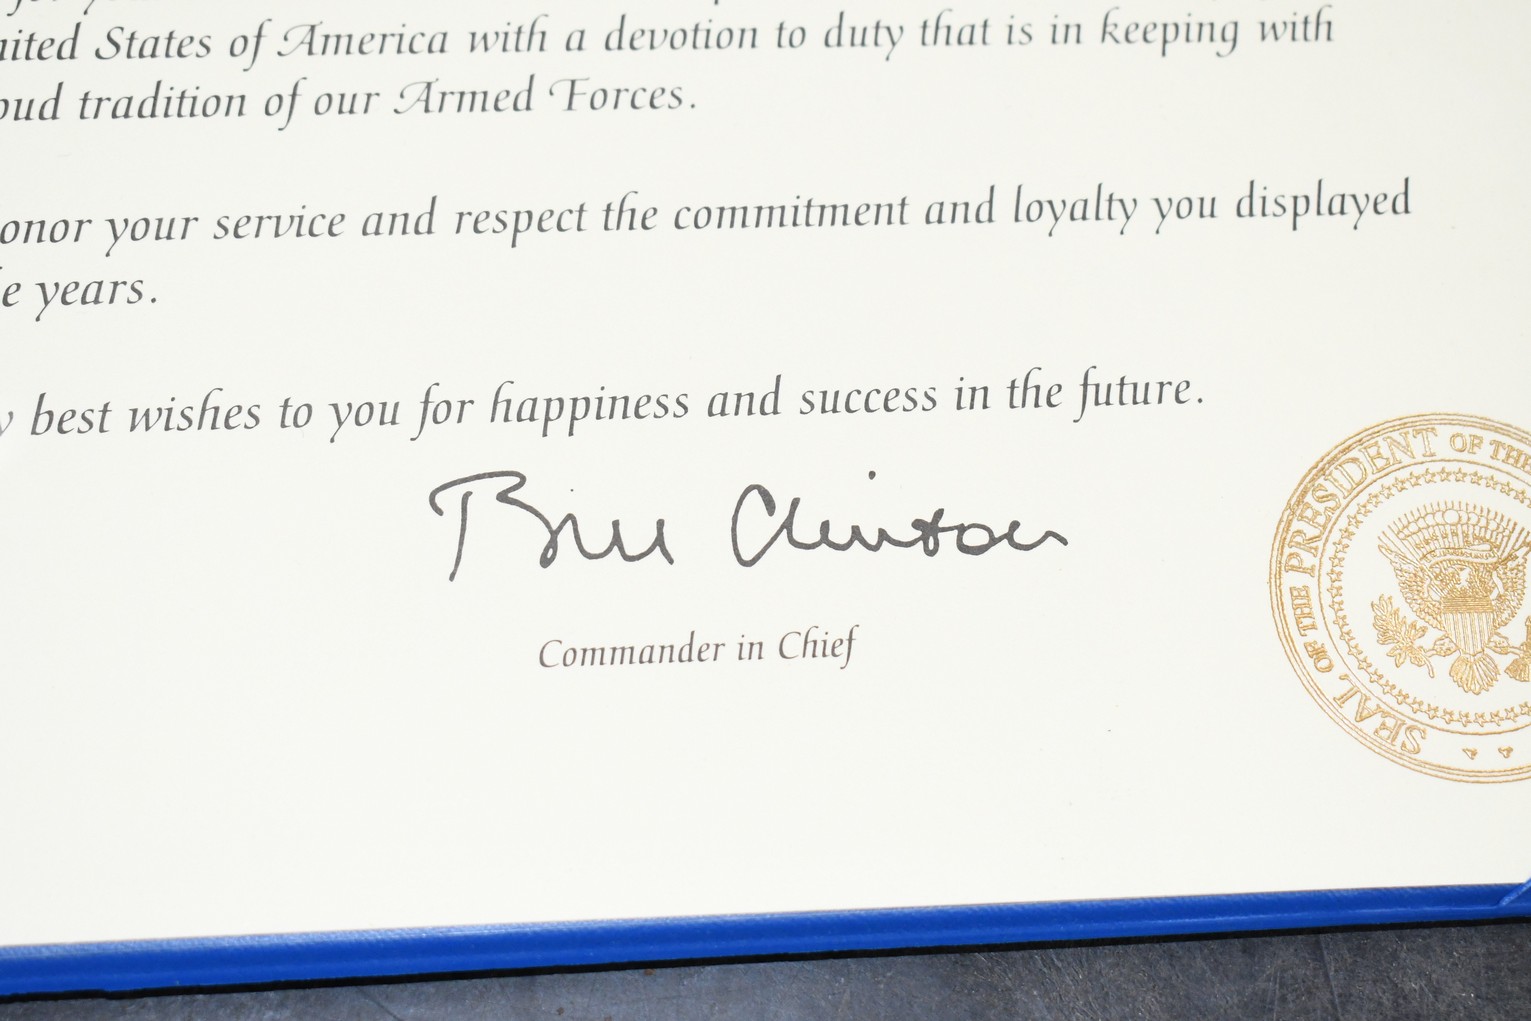 United States of America with a devotion to duty that is in keeping with
proud tradition of our Armed Forces.
honor your service and respect the commitment and loyalty you displayed
years.
best wishes to you for happiness and success in the future.
Bill Clinton
Commander in Chief
SEAL OF THE PRESIDENT OF THE